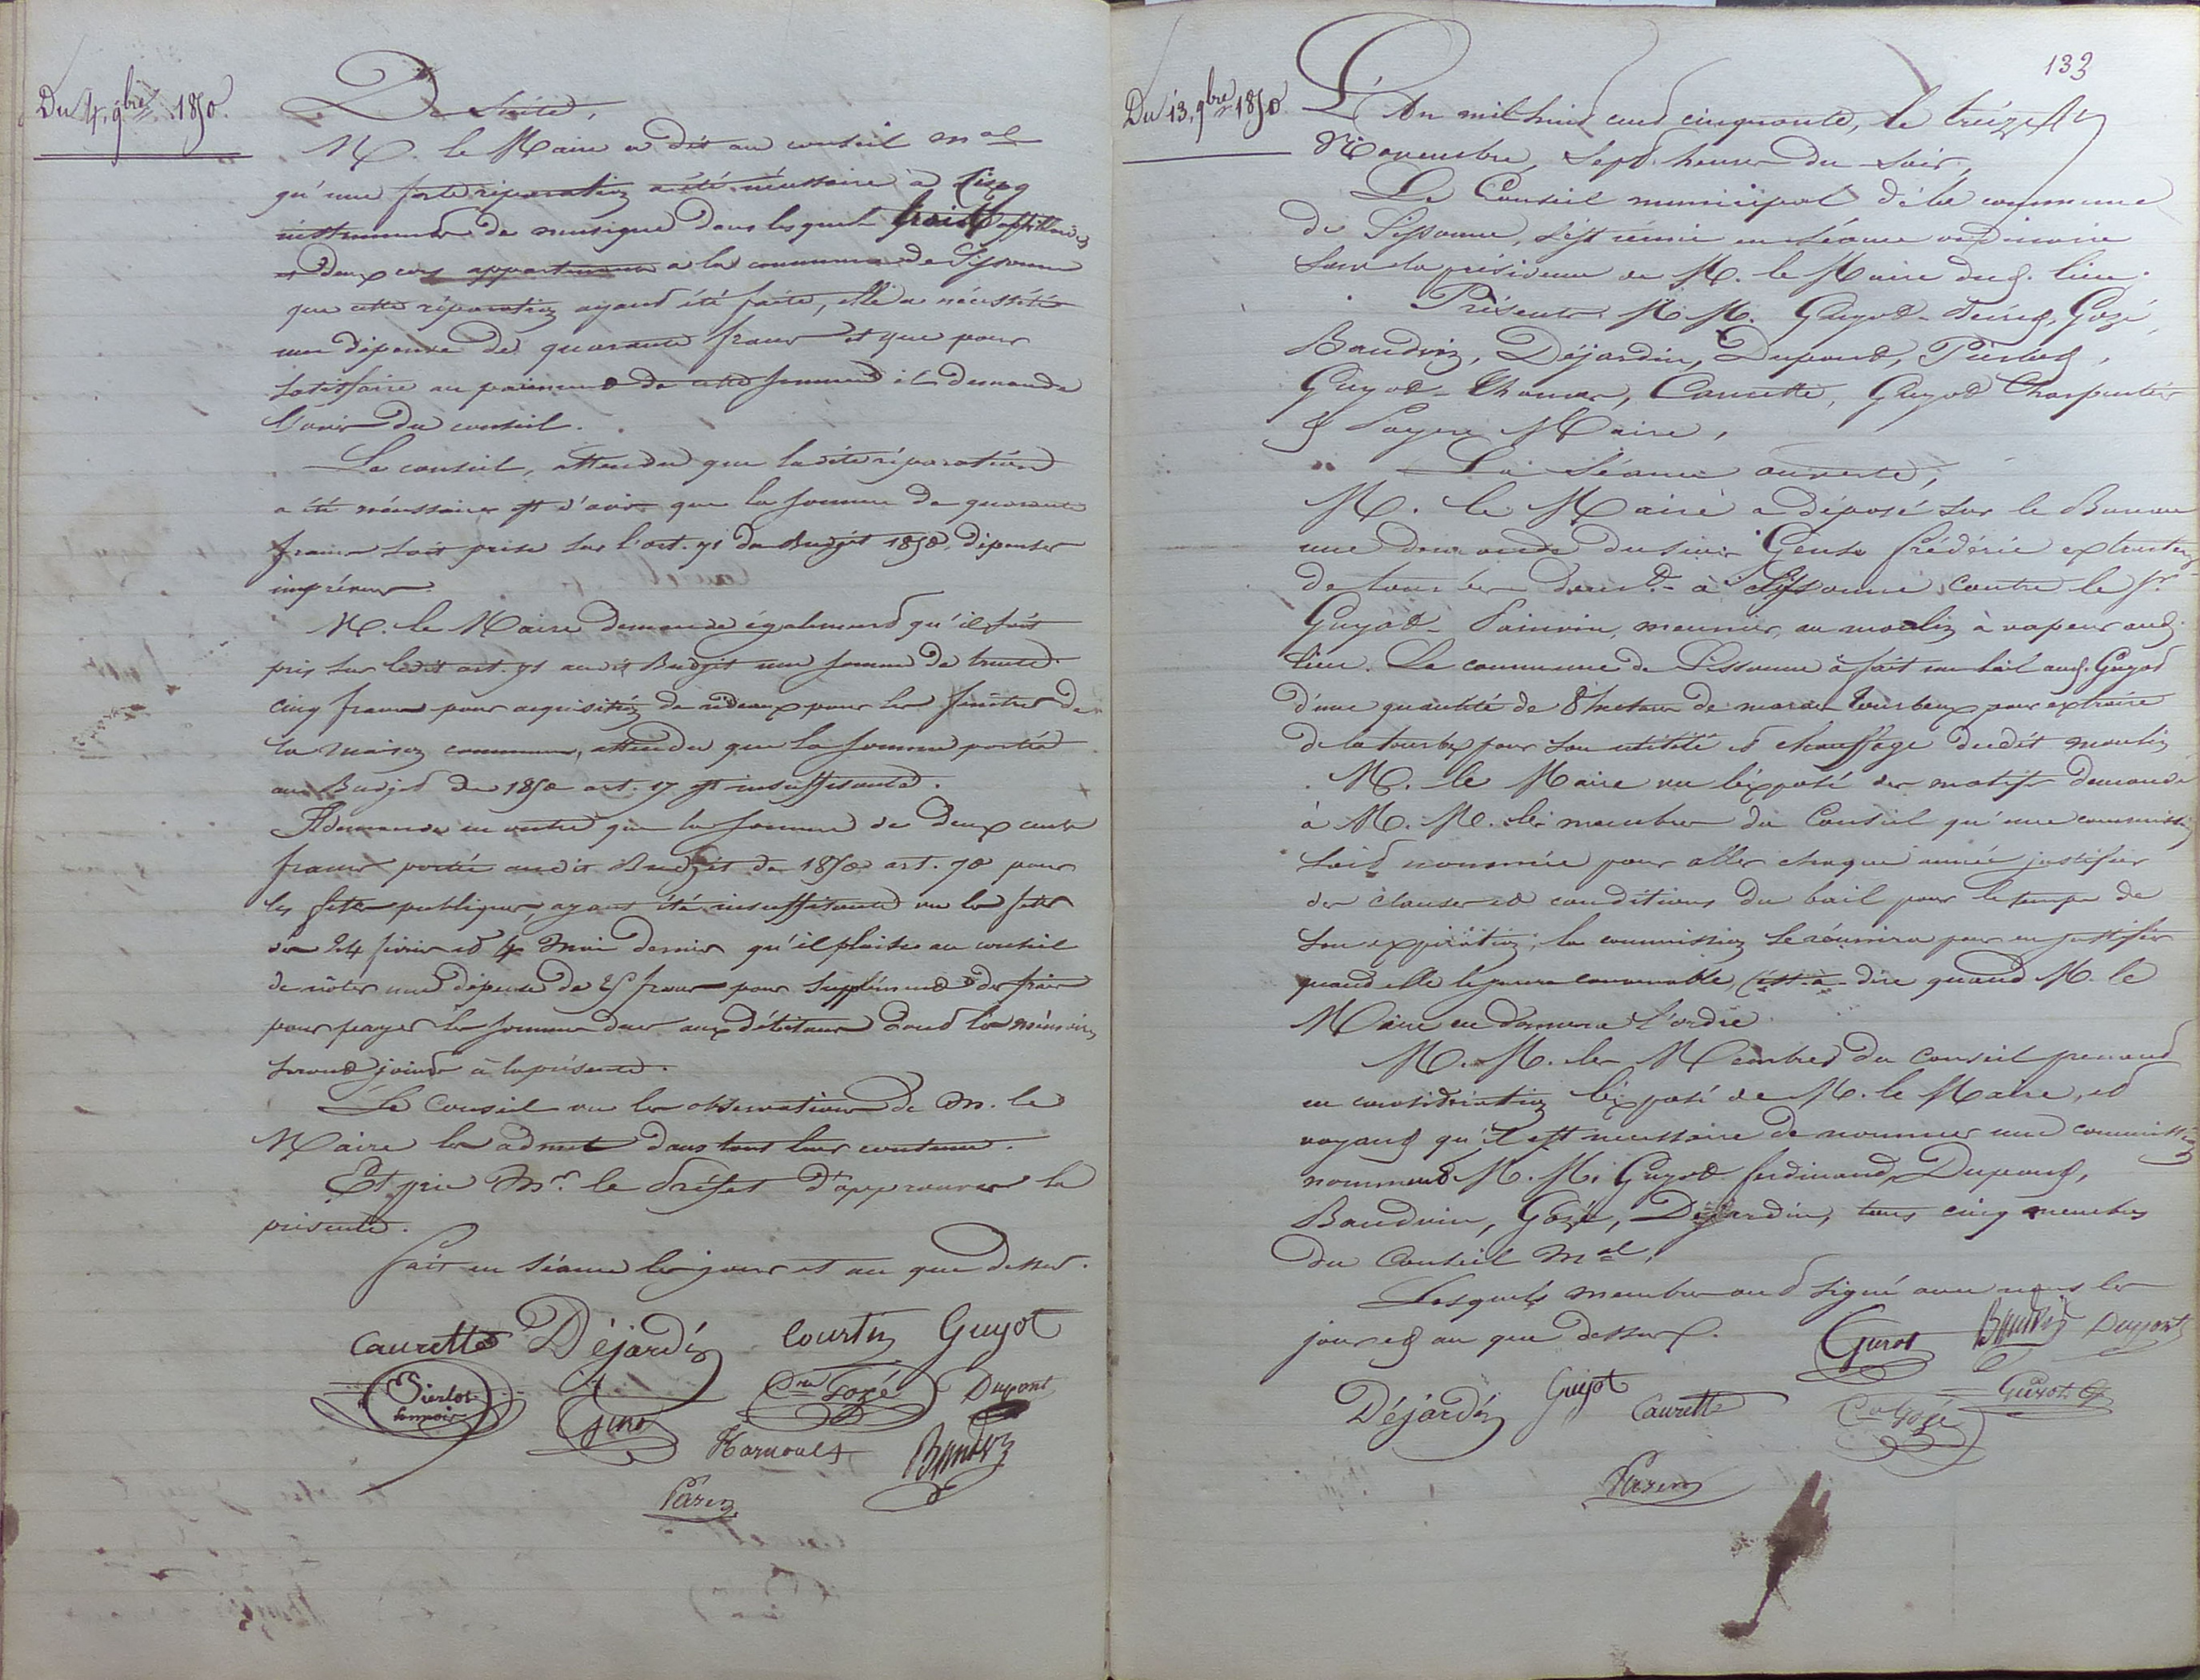 Du 4, 9bre 1850.
De Suite,
M. le Maire a dit au conseil mal
qu'une forte réparation a été nécessaire à cinq
instruments de musique dans lesquels trois
et deux cors appartenant à la commune de Sissonne
que cette réparation ayant été faite, elle a nécessité
une dépense de quarante francs et que pour
satisfaire au paiement de cette somme il demande
l'avis du conseil.
Le conseil, attendu que ladite réparation
a été nécessaire est d'avis que la somme de quarante
francs soit prise sur l'art. 71 du Budget 1850, dépenses
imprévues.
M. le Maire demande également qu'il soit
pris sur ledit art. 71 audit Budget une somme de trente
cinq francs pour acquisition de rideaux pour les fenêtres de
la maison commune, attendu que la somme portée
au Budget de 1850 art. 17 est insuffisante.
Il demande en outre que la somme de deux cents
francs portée audit Budget de 1850 art. 70 pour
les fêtes publiques, ayant été insuffisante vu les fêtes
des 24 février et 4 Mai dernier qu'il plaise au conseil
de voter une dépense de 25 francs pour supplément des frais
pour payer les sommes dues aux débitants dont les mémoires
seront joints à la présente.
Le Conseil vu les observations de M. le
Maire les admet dans tout leur contenu.
Et prie Mr. le Préfet d'approuver la
présente.
Fait en séance les jour et an que dessus.
Caurette Déjardin Courtin Guyot
Pierlot Gozé Dupont
Guyot Harnoult Baudoin
Payen
133
Du 13, 9bre 1850
L'An mil huit cent cinquante, le treize
Novembre, sept heures du soir,
Le Conseil municipal de la commune
de Sissonne, s'est réuni en séance ordinaire
sous la présidence de M. le Maire dud. lieu.
Présents M M. Guyot-Desired, Gozé,
Baudoin, Déjardin, Dupont, Pierlot,
Guyot-Thomas, Caurette, Guyot Charpentier
& Payen Maire,
La Séance ouverte,
M. le Maire a déposé sur le Bureau
une demande du sieur Gense frédéric extracteur
de tourbes demt. à Sissonne contre le Sr.
Guyot-Poinvin, meunier, au moulin à vapeur aud.
lieu. La commune de Sissonne a fait un bail aud. Guyot
d'une quantité de 8 hectares de marais tourbeux pour extraire
de la tourbe pour son utilité et chauffage dudit moulin
M. le Maire vu l'exposé des motifs demande
à M. M. les membres du Conseil qu'une commission
soit nommée pour aller chaque année justifier
des clauses et conditions du bail pour le temps de
son expiration; la commission se réunira pour en justifier
quand elle le jugera convenable, c'est-à-dire quand M. le
Maire en donnera l'ordre.
M. M. les Membres du Conseil prenant
en considération l'exposé de M. le Maire, et
voyant qu'il est nécessaire de nommer une commission
nomment M. M. Guyot ferdinand, Dupont,
Baudoin, Gozé, Déjardin, tous cinq membres
du Conseil mal,
Lesquels membres ont signé avec nous les
jour et an que dessus.
Guyot Baudoin Dupont
Déjardin Guyot Caurette Gozé Guyot
Payen